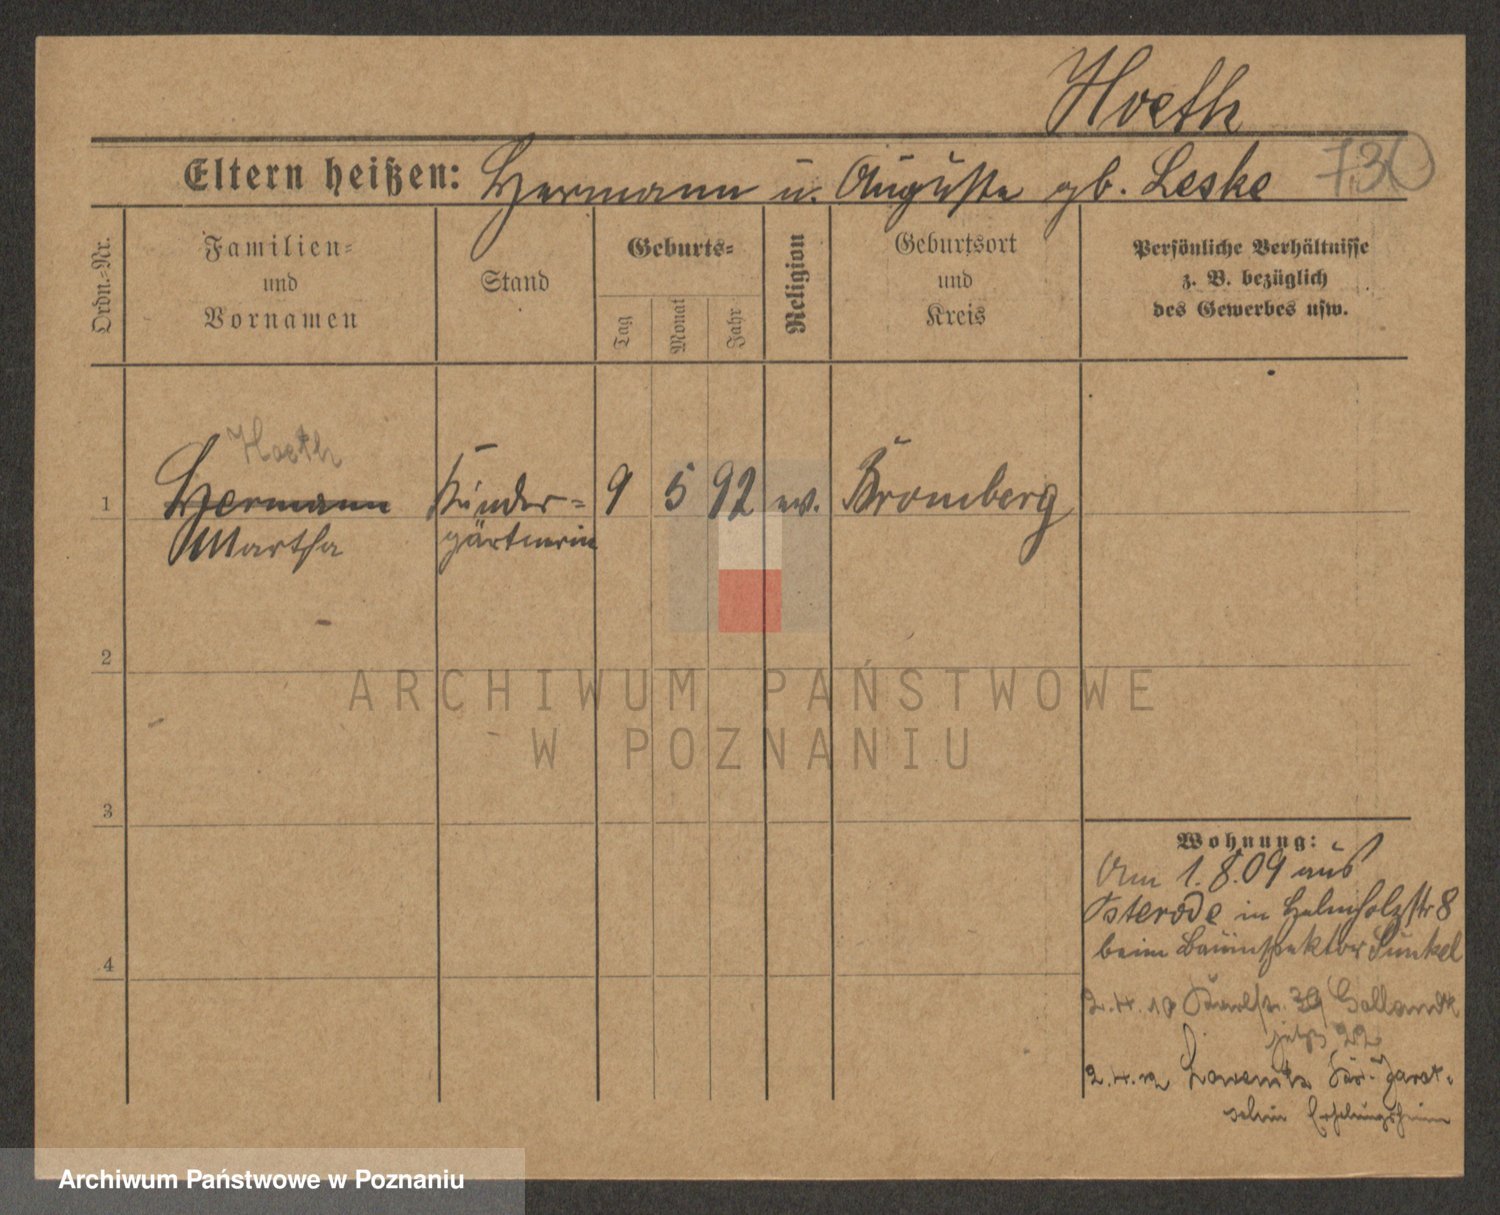 Hoeth
730
Eltern heißen: Hermann u. Auguste gb. Leske
Ordn.-Nr.
Familien-
und
Vornamen
Stand
Geburts-
Tag
Monat
Jahr
Religion
Geburtsort
und
Kreis
Persönliche Verhältnisse
z. B. bezüglich
des Gewerbes usw.
Hoeth
1 Hermann Kinder- 9 5 92 ev. Bromberg
Martha gärtnerin
2
3
4
Wohnung:
Am 1.8.09 aus
Osterode in Helmholzstr 8
beim Bauinspektor Sunkel
2.4.10 39
jetzt 22
2.4.12
ARCHIWUM PAŃSTWOWE
W POZNANIU
Archiwum Państwowe w Poznaniu